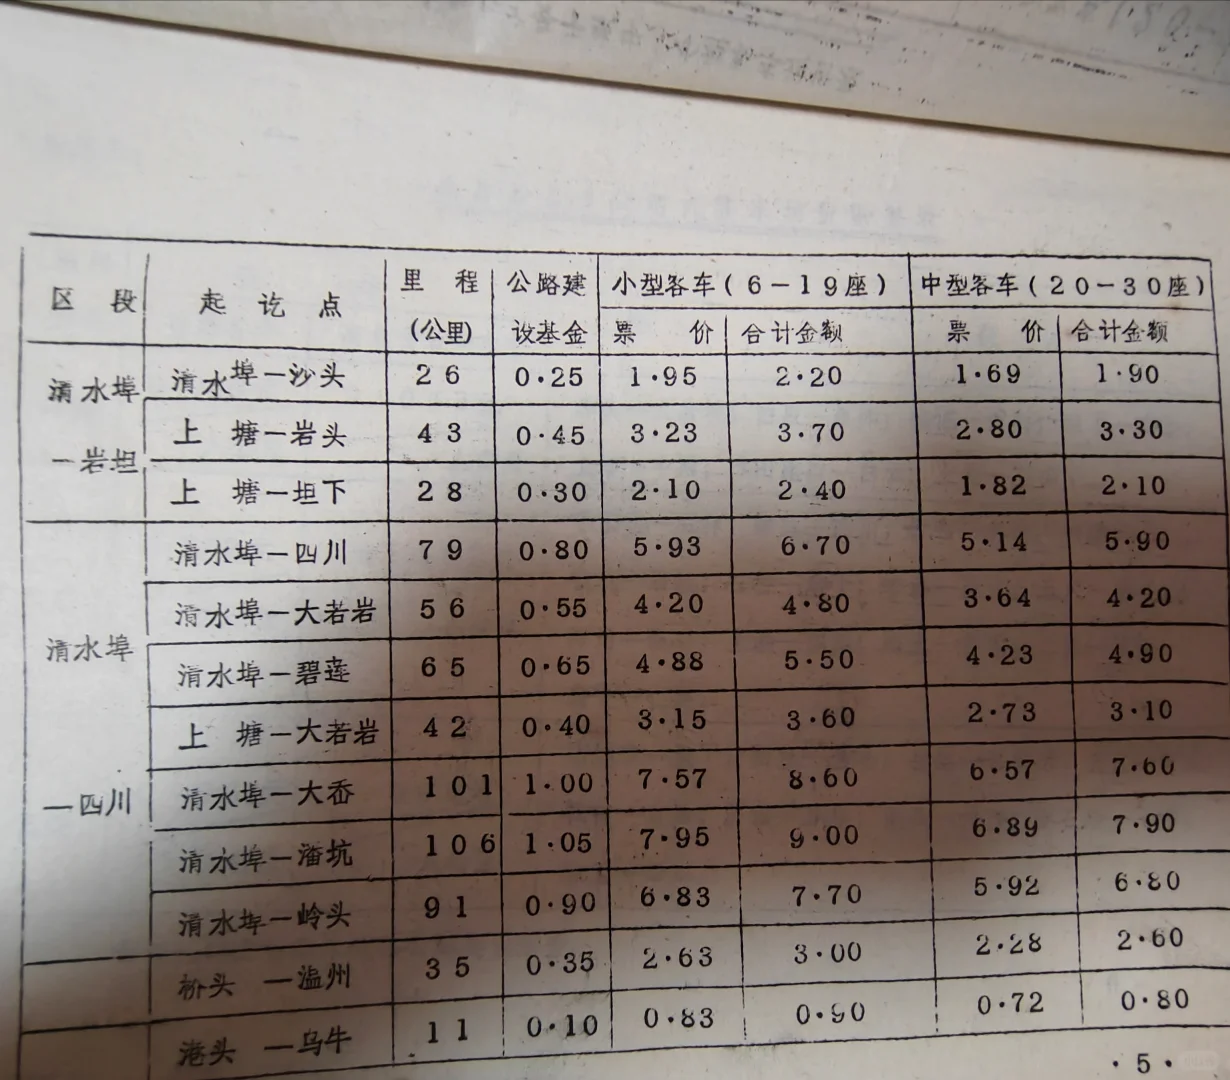 区 段 起 讫 点 里 程 (公里) 公路建设基金 小型客车(6-19座) 中型客车(20-30座)
票 价 合计金额 票 价 合计金额
清水埠-岩坦
清水埠-沙头 26 0.25 1.95 2.20 1.69 1.90
上 塘-岩头 43 0.45 3.23 3.70 2.80 3.30
上 塘-坦下 28 0.30 2.10 2.40 1.82 2.10
清水埠-四川
清水埠-四川 79 0.80 5.93 6.70 5.14 5.90
清水埠-大若岩 56 0.55 4.20 4.80 3.64 4.20
清水埠-碧莲 65 0.65 4.88 5.50 4.23 4.90
上 塘-大若岩 42 0.40 3.15 3.60 2.73 3.10
清水埠-大岙 101 1.00 7.57 8.60 6.57 7.60
清水埠-潘坑 106 1.05 7.95 9.00 6.89 7.90
清水埠-岭头 91 0.90 6.83 7.70 5.92 6.80
桥头 -温州 35 0.35 2.63 3.00 2.28 2.60
港头 -乌牛 11 0.10 0.83 0.90 0.72 0.80
·5·